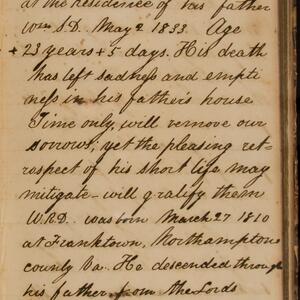 at the residence of his father
Wm S.D. May 2 1833. Age
+ 23 years + 5 days. His death
has left sadness and empti
ness in his father's house
Time only, will remove our
sorrows; yet the pleasing ret-
rospect of his short life may
mitigate - will gratify them
W.R.D. was born March 27 1810
at Franktown, Northampton
county Va. He descended through
his father from the Lords